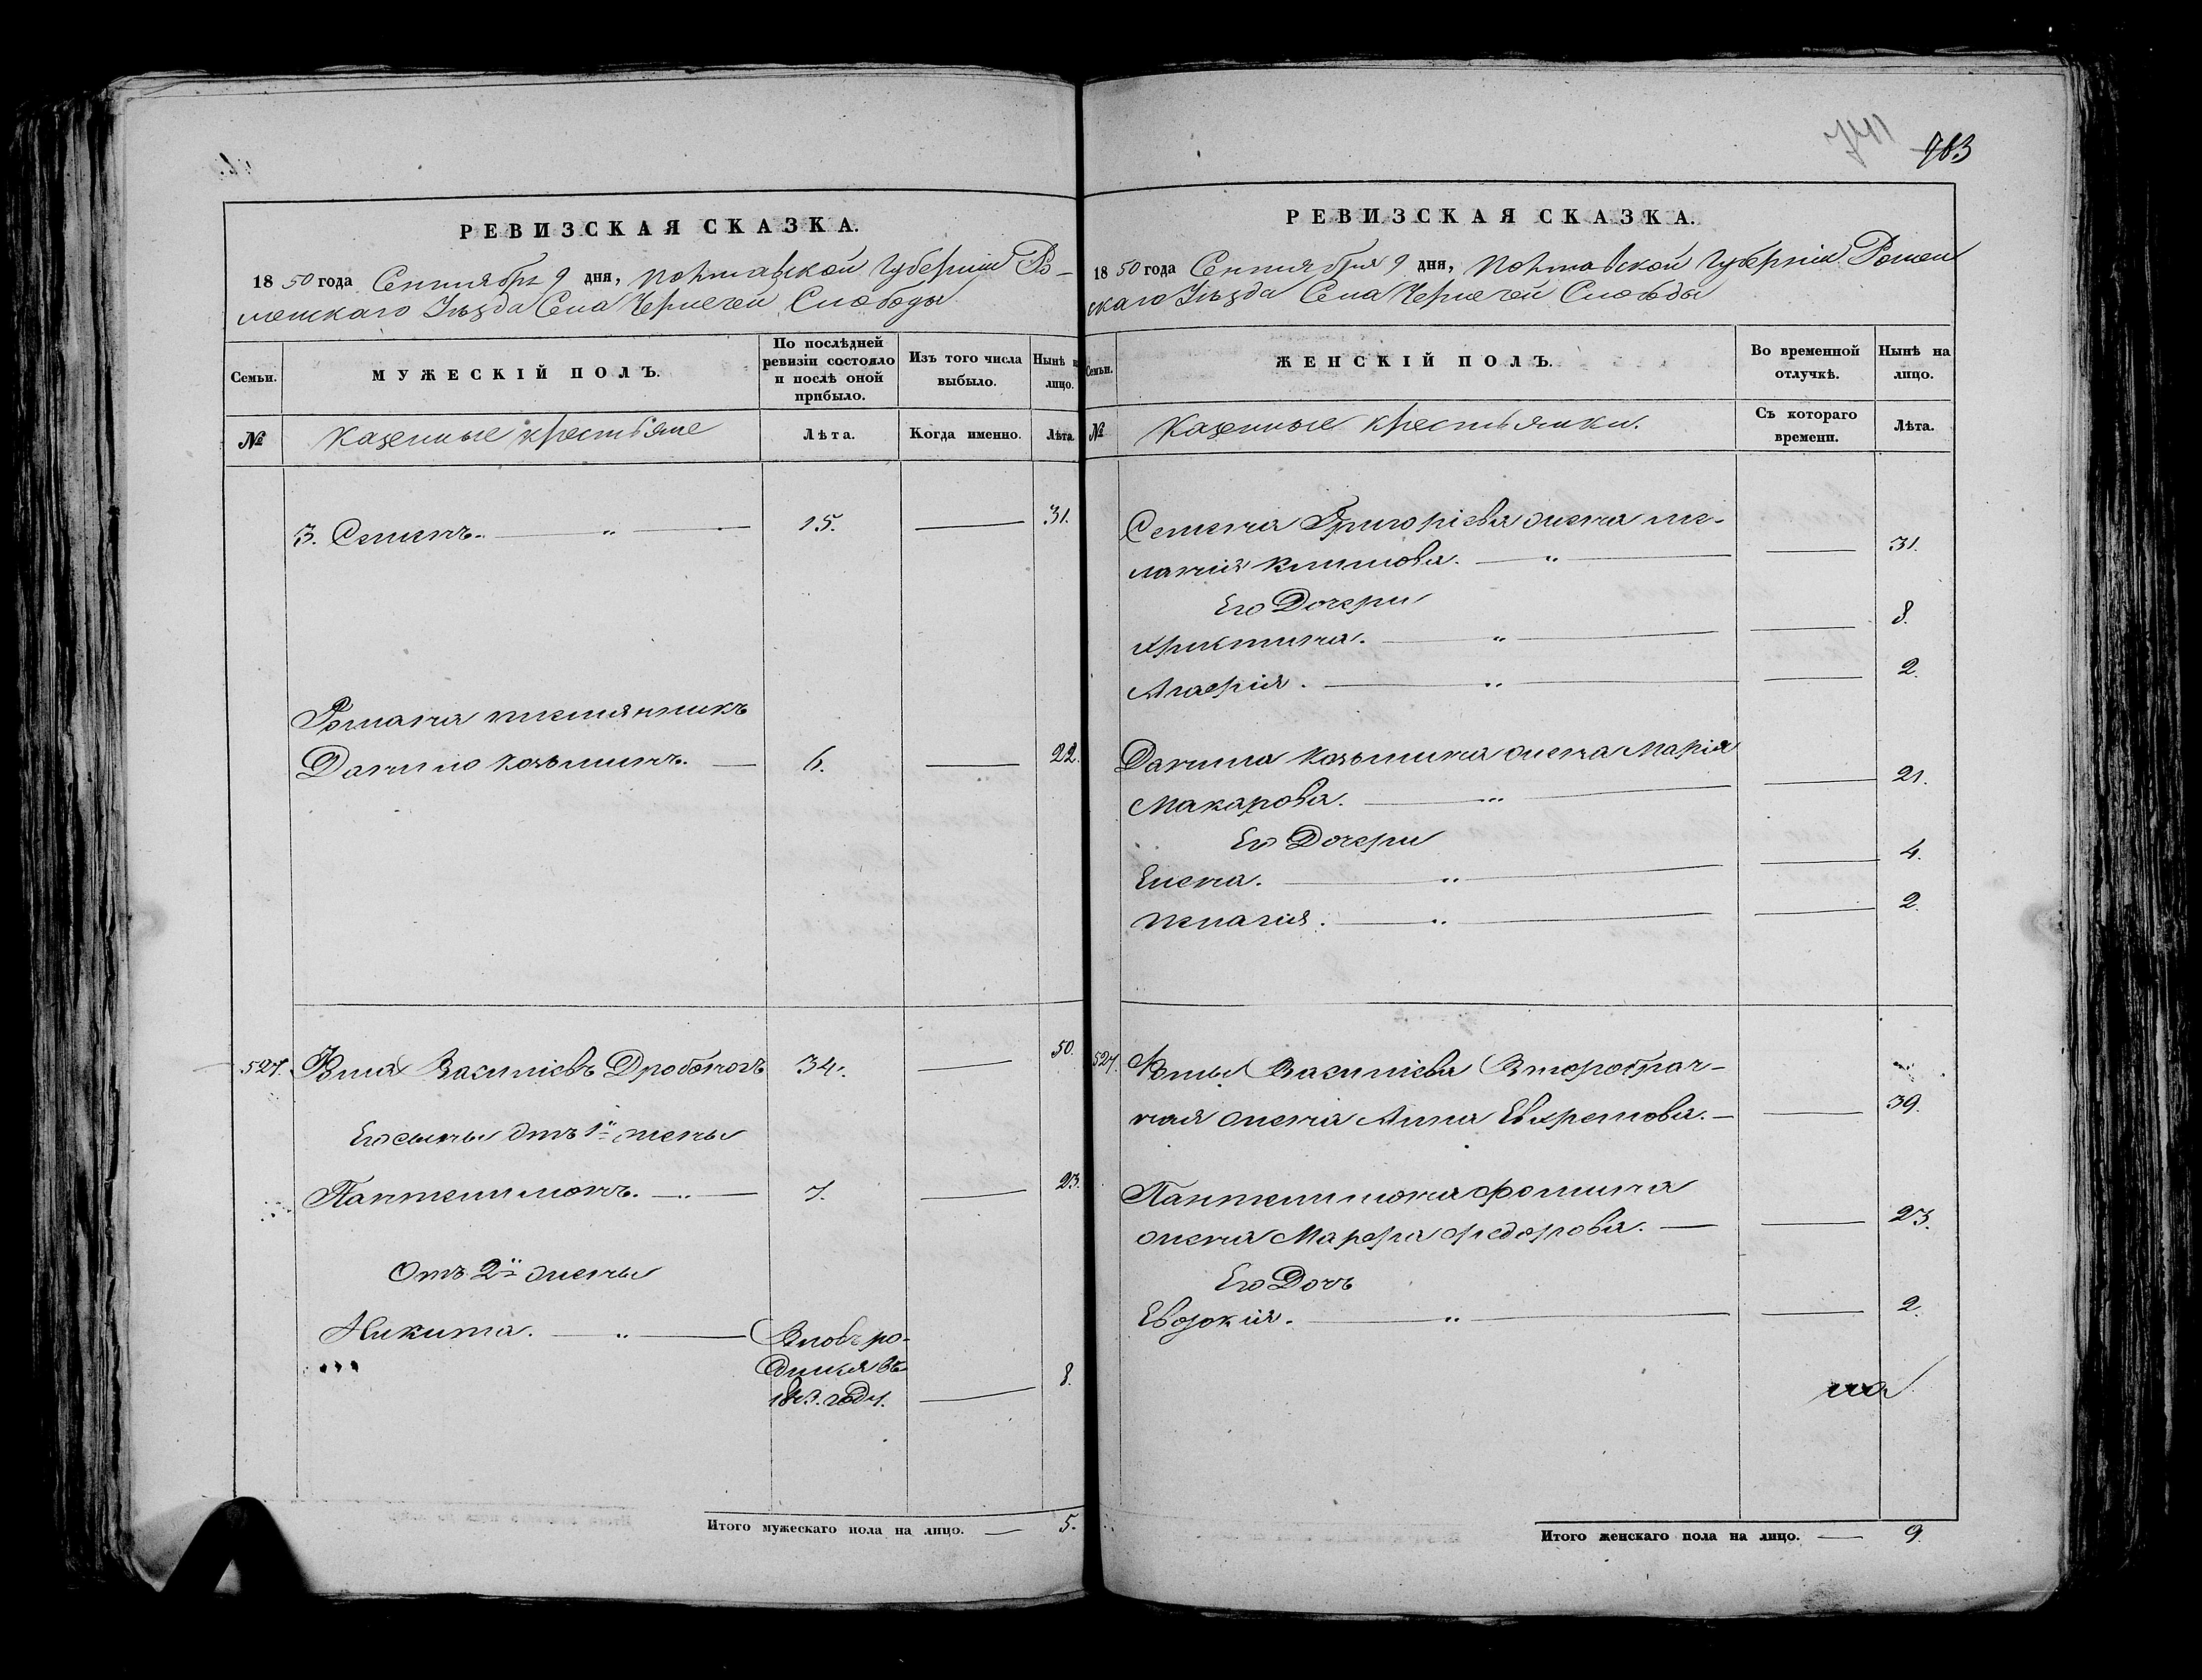 РЕВИЗСКАЯ СКАЗКА.
1850 года Сентября 9 дня, Полтавской Губерніи Ро-
менскаго Уѣзда Села Чернечей Слободы
Семьи.
МУЖЕСКІЙ ПОЛЪ.
По послѣдней ревизіи состояло и послѣ оной прибыло.
Изъ того числа выбыло.
Нынѣ на лицо.
№
Казенные крестьяне
Лѣта.
Когда именно.
Лѣта.
3. Семенъ. 15. 31.
Романа племянникъ
Данило Козьминъ. 6. 22.
527. Фома Василіевъ Дроботъ 34. 50.
Его сынъ отъ 1й жены
Пантелимонъ. 7. 23.
Отъ 2й жены
Никита. Вновь ро-
дился въ
1843. году. 8.
Итого мужескаго пола на лицо. 5.
703
РЕВИЗСКАЯ СКАЗКА.
1850 года Сентября 9 дня, Полтавской Губерніи Ромен
скаго Уѣзда Села Чернечей Слободы
Семьи.
ЖЕНСКІЙ ПОЛЪ.
Во временной отлучкѣ.
Нынѣ на лицо.
№
Казенные крестьянки.
Съ котораго времени.
Лѣта.
Семена Григоріева жена ме-
ланія Климова. 31.
Его Дочери
Христина. 8.
Агафія. 2.
Данила Козьмина жена Марія
Макарова. 21.
Его Дочери
Елена. 4.
Пелагія. 2.
527. Фомы Василіева Второбрач-
ная жена Анна Евхремова. 39.
Пантелимона Фомина
жена Марфа Федорова. 23.
Его Дочь
Евдокія. 2.
Итого женскаго пола на лицо. 9.